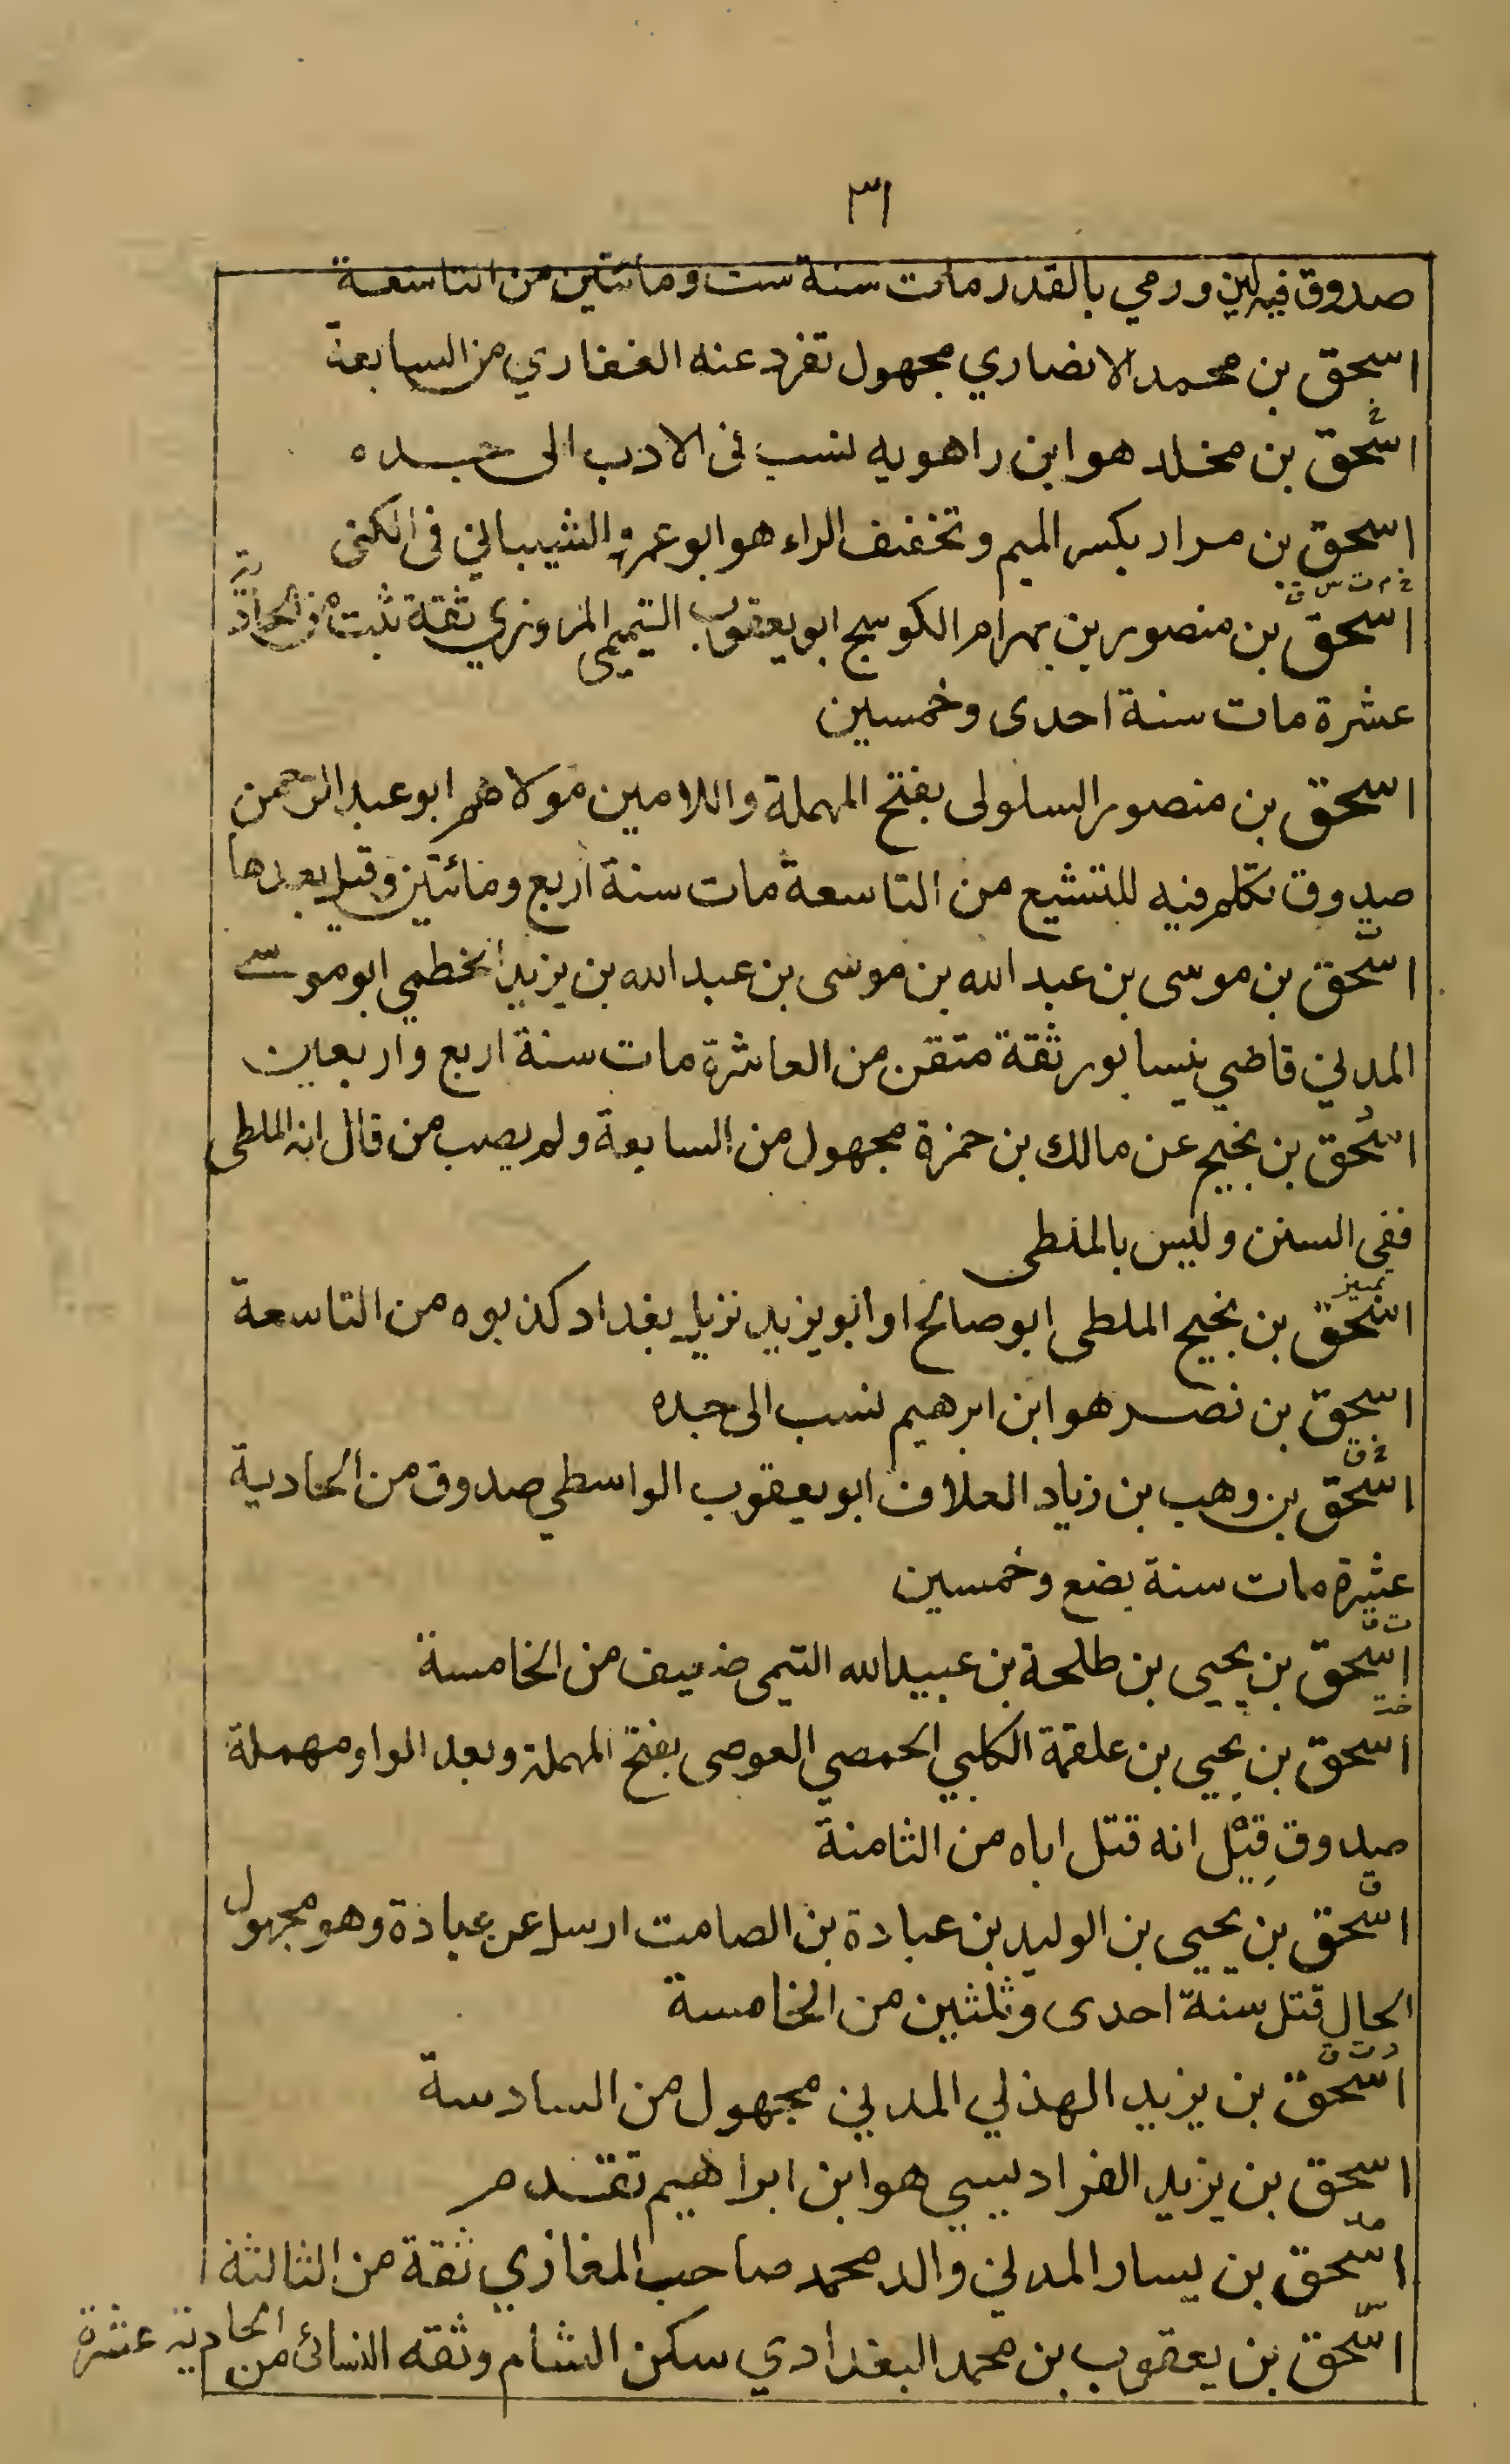 ٣١
صدوق فيه لين ورمي بالقدر مات سنة ست ومائتين من التاسعة
اسحق بن محمد الانصاري مجهول تفرد عنه الغفاري من السابعة
خ
اسحق بن مخلد هو ابن راهويه نسب في الادب الى جده
اسحق بن مرار بكسر الميم وتخفيف الراء هو ابو عمرو الشيباني في الكنى
خ م ت س ق
اسحق بن منصور بن بهرام الكوسج ابو يعقوب التميمي المروزي ثقة ثبت من الحادية
عشرة مات سنة احدى وخمسين
اسحق بن منصور السلولى بفتح المهملة واللامين مولاهم ابو عبد الرحمن
صدوق تكلم فيه للتشيع من التاسعة مات سنة اربع ومائتين وقيل بعدها
اسحق بن موسى بن عبد الله بن موسى بن عبد الله بن يزيد الخطمي ابو موسى
المدني قاضي نيسابور ثقة متقن من العاشرة مات سنة اربع واربعين
د
اسحق بن نجيح عن مالك بن حمزة مجهول من السابعة ولم يصب من قال انه الملطى
ففي السنن وليس بالملطى
تمييز
اسحق بن نجيح الملطى ابو صالح او ابو يزيد نزيل بغداد كذبوه من التاسعة
اسحق بن نصر هو ابن ابرهيم نسب الى جده
خ ق
اسحق بن وهب بن زياد العلاف ابو يعقوب الواسطي صدوق من الحادية
عشرة مات سنة بضع وخمسين
ت ق
اسحق بن يحيى بن طلحة بن عبيد الله التيمى ضعيف من الخامسة
خت
اسحق بن يحيى بن علقمة الكلبي الحمصي العوصى بفتح المهملة وبعد الواو مهملة
صدوق قِيْل انه قتل اباه من الثامنة
ق
اسحق بن يحيى بن الوليد بن عبادة بن الصامت ارسل عن عبادة وهو مجهول
الحال قتل سنة احدى وثلثين من الخامسة
د ت ق
اسحق بن يزيد الهذلي المدني مجهول من السادسة
اسحق بن يزيد الفراديسي هو ابن ابراهيم تقدم
مد
اسحق بن يسار المدني والد محمد صاحب المغازي ثقة من الثالثة
س
اسحق بن يعقوب بن محمد البغدادي سكن الشام وثقه النسائى من الحادية عشرة